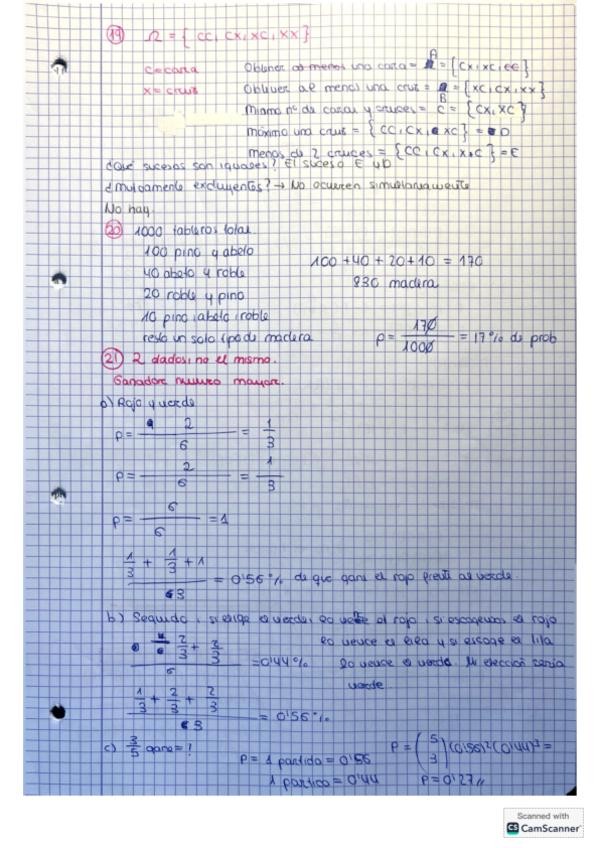 19 Ω = { CC, CX, XC, XX }
c=cara Obtener al menos una cara = A = {CX, XC, CC}
x=cruz Obtener al menos una cruz = B = {XC, CX, XX}
Mismo nº de caras y cruces = C = {CX, XC}
máximo una cruz = {CC, CX, XC} = D
menos de 2 cruces = {CC, CX, XC} = E
¿Qué sucesos son iguales? El suceso E y D
¿mutuamente excluyentes? → No ocurren simultáneamente
No hay.
20 1000 tableros total.
100 pino y abeto
40 abeto y roble
20 roble y pino
10 pino, abeto, roble
resto un solo tipo de madera
100 + 40 + 20 + 10 = 170
830 madera
P = 170 / 1000 = 17% de prob
21 2 dados, no el mismo.
Ganador numero mayor.
a) Rojo y verde
P = 2 / 6 = 1/3
P = 2 / 6 = 1/3
P = 6 / 6 = 1
1/3 + 1/3 + 1 / 3 = 0'56% de que gane el rojo frente al verde.
b) Segundo, si elige el verde, lo vence el rojo, si escogemos el rojo
lo vence el lila y si escoge el lila
lo vence el verde. Mi elección sería
verde.
2/3 + 2/3 = 0'44%
1/3 + 2/3 + 2/3 / 3 = 0'56%
c) 3/5 gane = ?
P = 1 partido = 0'56
1 partido = 0'44
P = (5 3) (0'56)² (0'44)³ =
P = 0'27
Scanned with
CS CamScanner